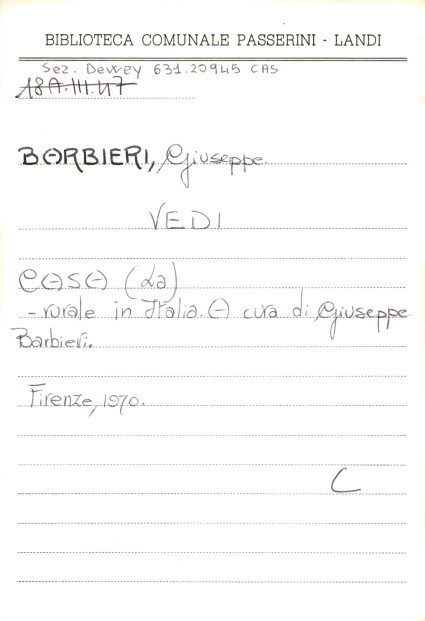 BIBLIOTECA COMUNALE PASSERINI - LANDI
Sez. Dewey 631.20945 CAS
18A.III.47
BARBIERI, Giuseppe.
VEDI
CASA (La)
- rurale in Italia. A cura di Giuseppe
Barbieri.
Firenze, 1970.
C